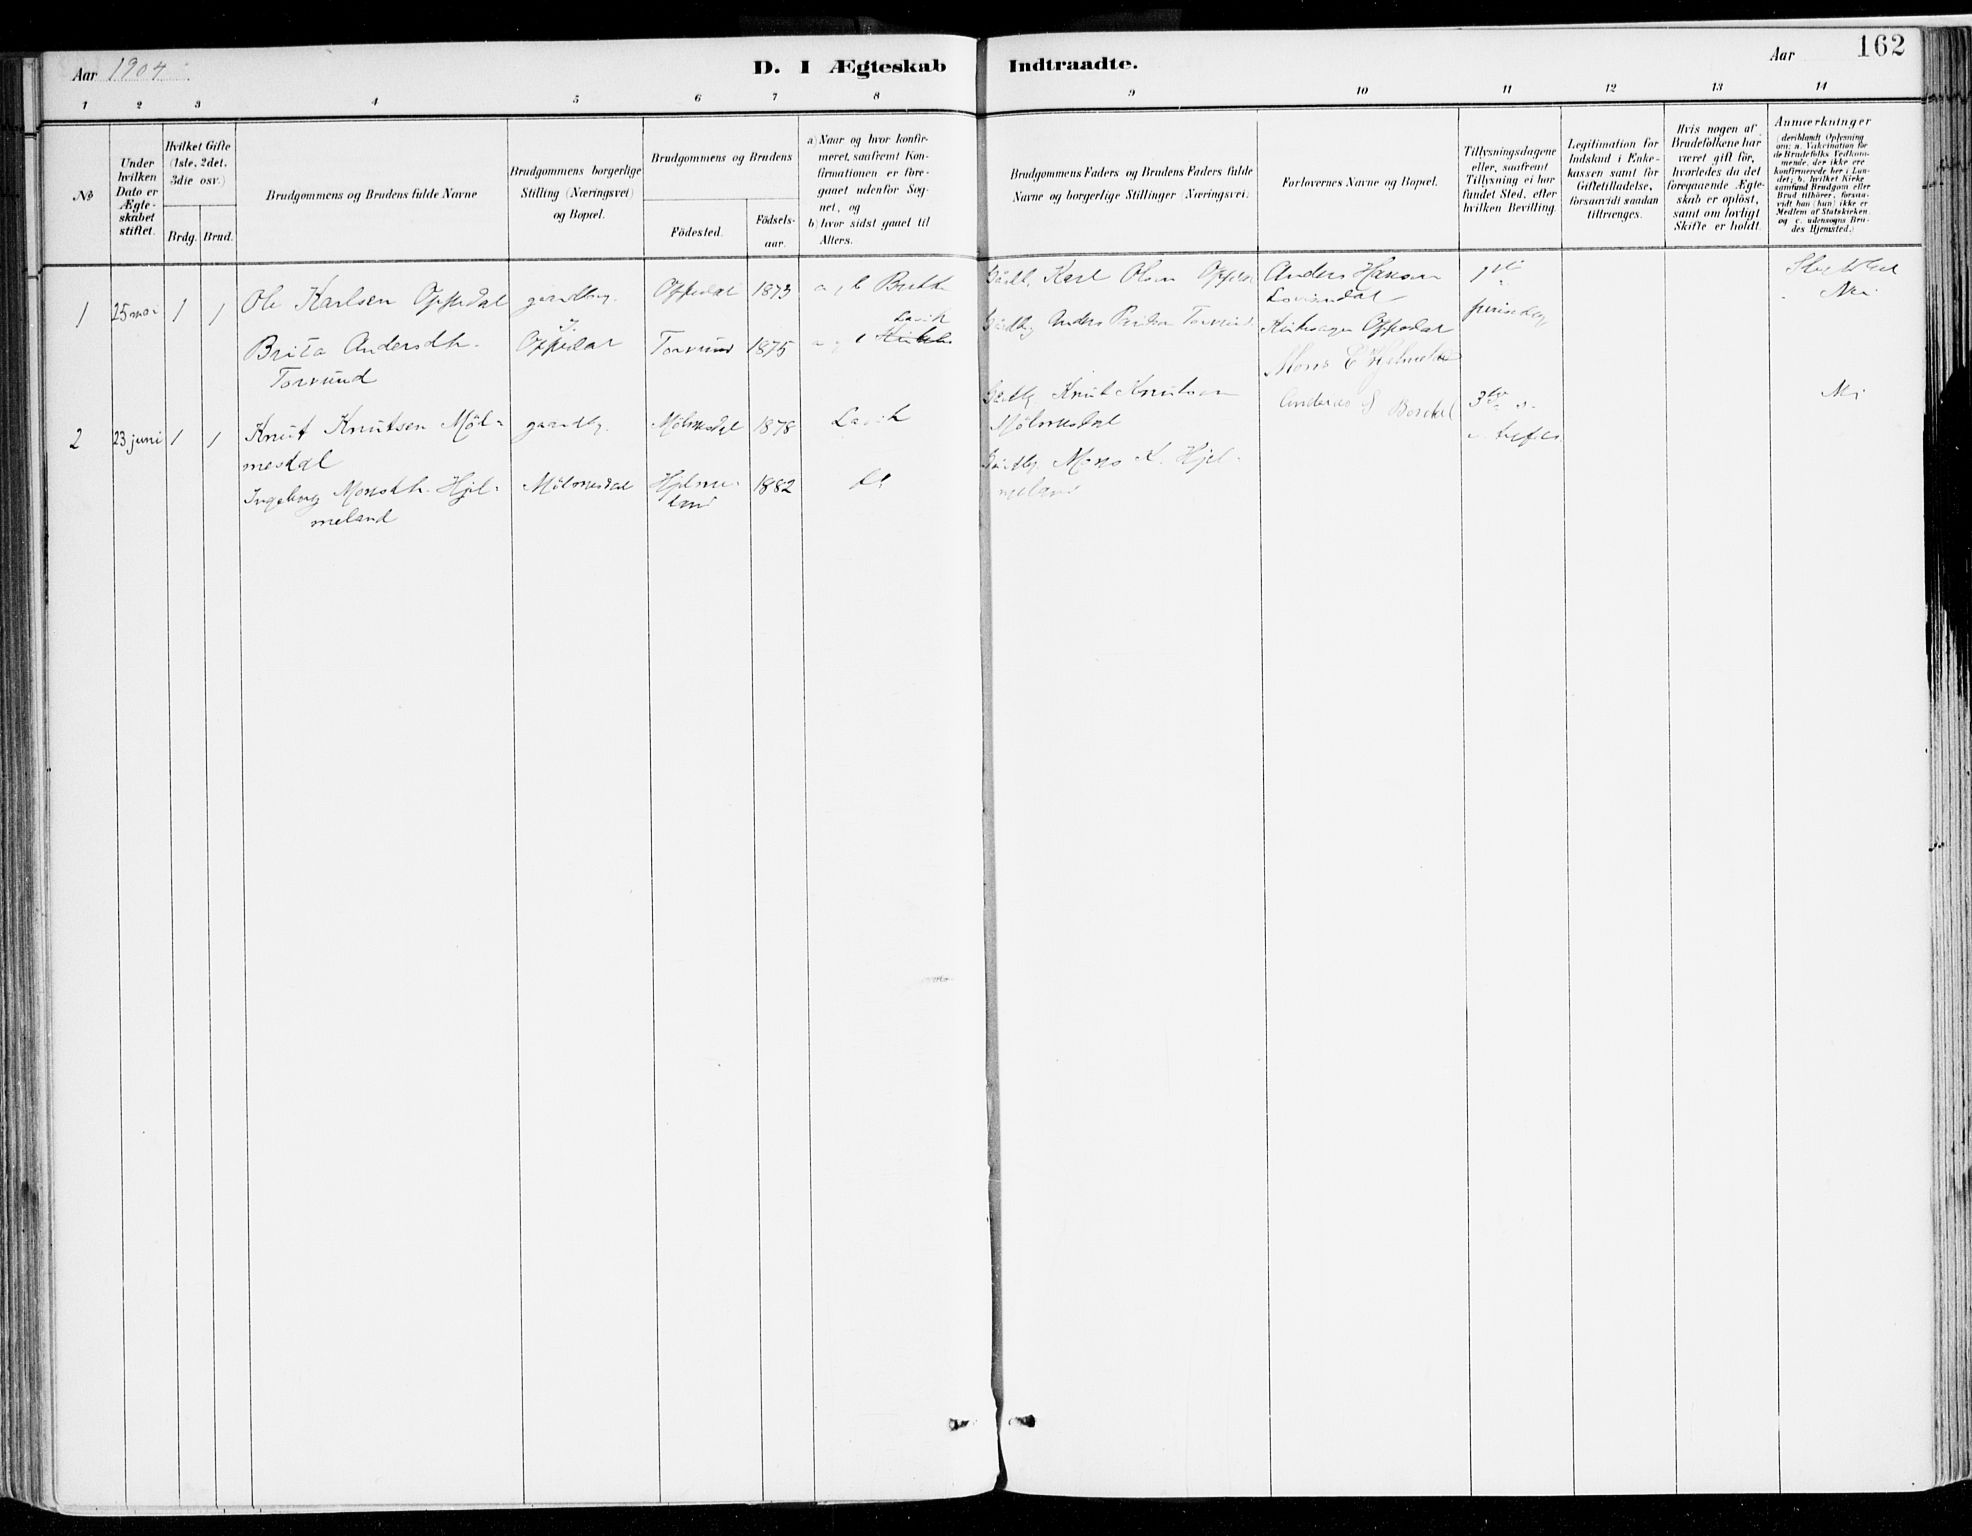 Aar 1904.
D. I Ægteskab Indtraadte.
Aar
162
1 2 3 4 5 6 7 8 9 10 11 12 13 14
No
Under hvilken Dato er Ægte-skabet stiftet.
Hvilket Gifte (1ste, 2det, 3die osv.)
Brdg. Brud.
Brudgommens og Brudens fulde Navne
Brudgommens borgerlige Stilling (Næringsvei) og Bopæl.
Brudgommens og Brudens
Födested.
Födsels-aar.
a) Naar og hvor konfir-meret, saafremt Kon-firmationen er fore-gaaet udenfor Sog-net, og
b) hvor sidst gaaet til Alters.
Brudgommens Faders og Brudens Faders fulde Navne og borgerlige Stillinger (Næringsvei).
Forlovernes Navne og Bopæl.
Tillysningsdagene eller, saafremt Tillysning ei har fundet Sted, efter hvilken Bevilling.
Legitimation for Indskud i Enke-kassen samt for Giftetilladelse, forsaavidt saadan tiltrænges.
Hvis nogen af Brudefolkene har været gift för, hvorledes da det foregaaende Ægte-skab er oplöst, samt om lovligt Skifte er holdt.
Anmærkninger
deriblandt Oplysning om: a. Vakcination for de Brudefolks Vedkom-mende, der ikke ere konfirmerede her i Lan-det; b. hvilket Kirke-samfund Brudgom eller Brud tilhører, forsaa-vidt han (hun) ikke er Medlem af Statskirken, og c. udensogns Bru-des Hjemsted.)
1 25 mai 1 1 Ole Karlsen Oppedal gaardbr. Oppedal 1873 a, b Brekke
Karl Olsen Oppedal
Anders Hansen
1ste
Nei
Brita Andersdtr. Torvund
Oppedal Torvund 1875 Lavik
Anders Torvund
Oppedal
pinsedag
Mons E Hjelmeland
2 23 juni 1 1 Knut Knutsen Möl-
mesdal
gaardbr. Mölmesdal 1878 Lavik
Knut Knutsen
Mölmesdal
Anders S
3
Nei
Ingeborg Monsdtr. Hjel-
meland
Mölmesdal Hjelme-
land
1882
Mons K. Hjel-
meland